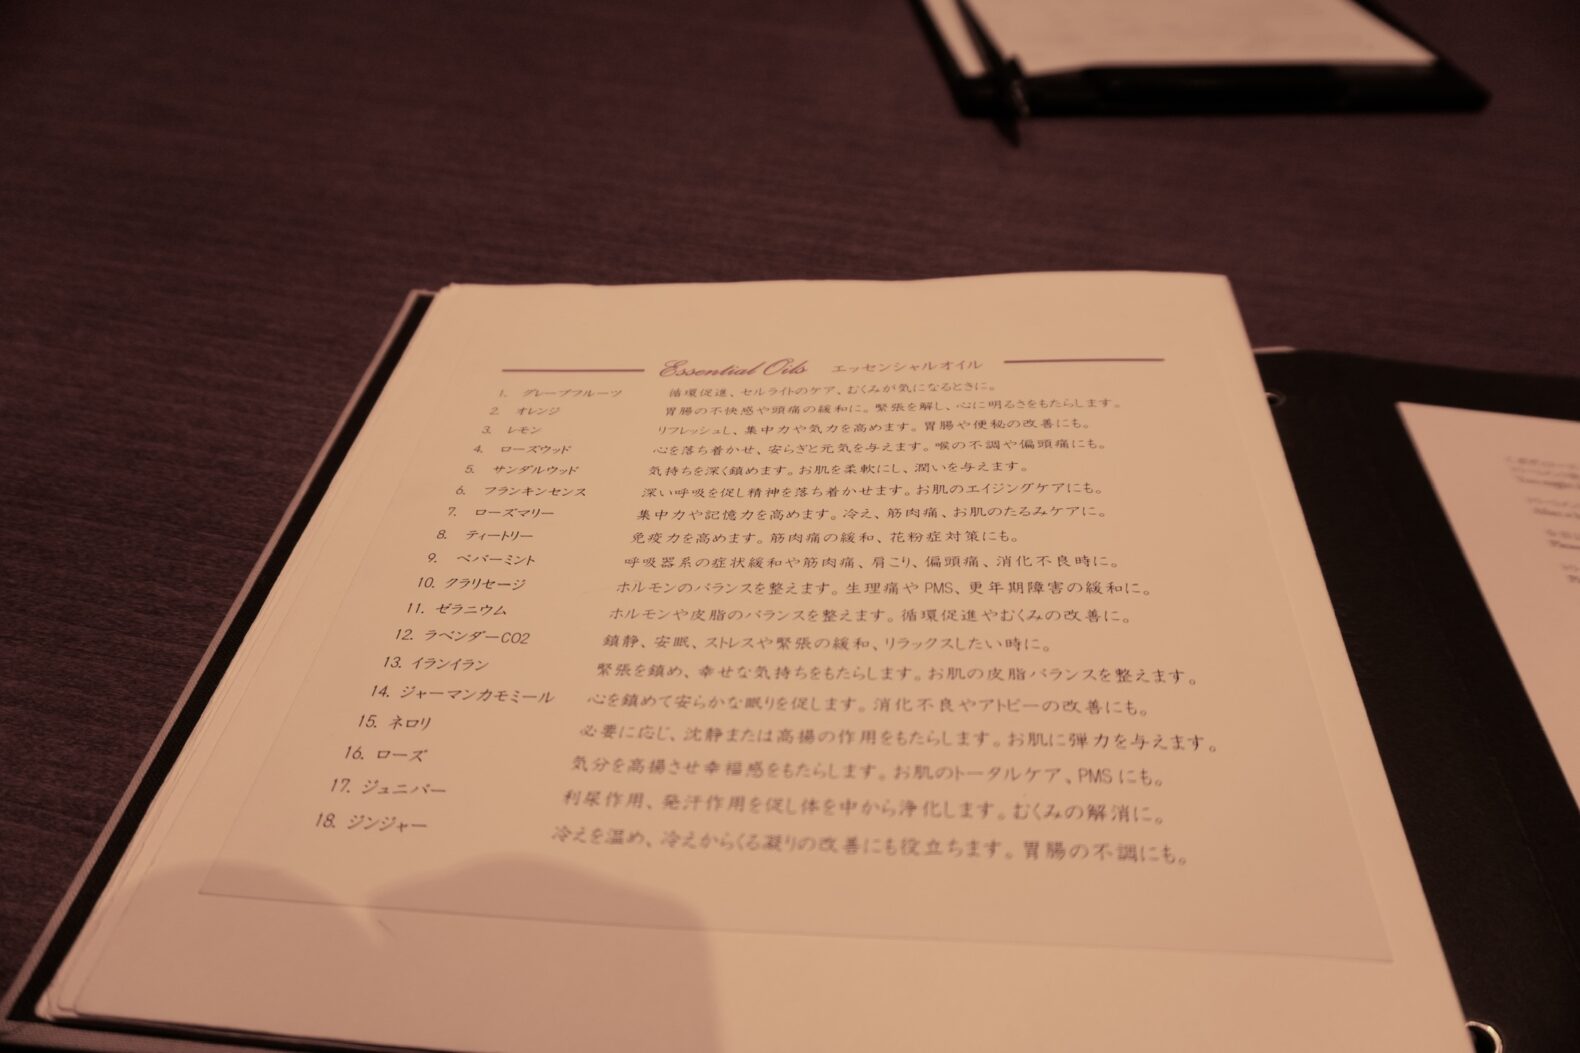 Essential Oils エッセンシャルオイル
1. グレープフルーツ 循環促進、セルライトのケア、むくみが気になるときに。
2. オレンジ 胃腸の不快感や頭痛の緩和に。緊張を解し、心に明るさをもたらします。
3. レモン リフレッシュし、集中力や気力を高めます。胃腸や便秘の改善にも。
4. ローズウッド 心を落ち着かせ、安らぎと元気を与えます。喉の不調や偏頭痛にも。
5. サンダルウッド 気持ちを深く鎮めます。お肌を柔軟にし、潤いを与えます。
6. フランキンセンス 深い呼吸を促し精神を落ち着かせます。お肌のエイジングケアにも。
7. ローズマリー 集中力や記憶力を高めます。冷え、筋肉痛、お肌のたるみケアに。
8. ティートリー 免疫力を高めます。筋肉痛の緩和、花粉症対策にも。
9. ペパーミント 呼吸器系の症状緩和や筋肉痛、肩こり、偏頭痛、消化不良時に。
10. クラリセージ ホルモンのバランスを整えます。生理痛やPMS、更年期障害の緩和に。
11. ゼラニウム ホルモンや皮脂のバランスを整えます。循環促進やむくみの改善に。
12. ラベンダーCO2 鎮静、安眠、ストレスや緊張の緩和、リラックスしたい時に。
13. イランイラン 緊張を鎮め、幸せな気持ちをもたらします。お肌の皮脂バランスを整えます。
14. ジャーマンカモミール 心を鎮めて安らかな眠りを促します。消化不良やアトピーの改善にも。
15. ネロリ 必要に応じ、沈静または高揚の作用をもたらします。お肌に弾力を与えます。
16. ローズ 気分を高揚させ幸福感をもたらします。お肌のトータルケア、PMSにも。
17. ジュニパー 利尿作用、発汗作用を促し体を中から浄化します。むくみの解消に。
18. ジンジャー 冷えを温め、冷えからくる凝りの改善にも役立ちます。胃腸の不調にも。